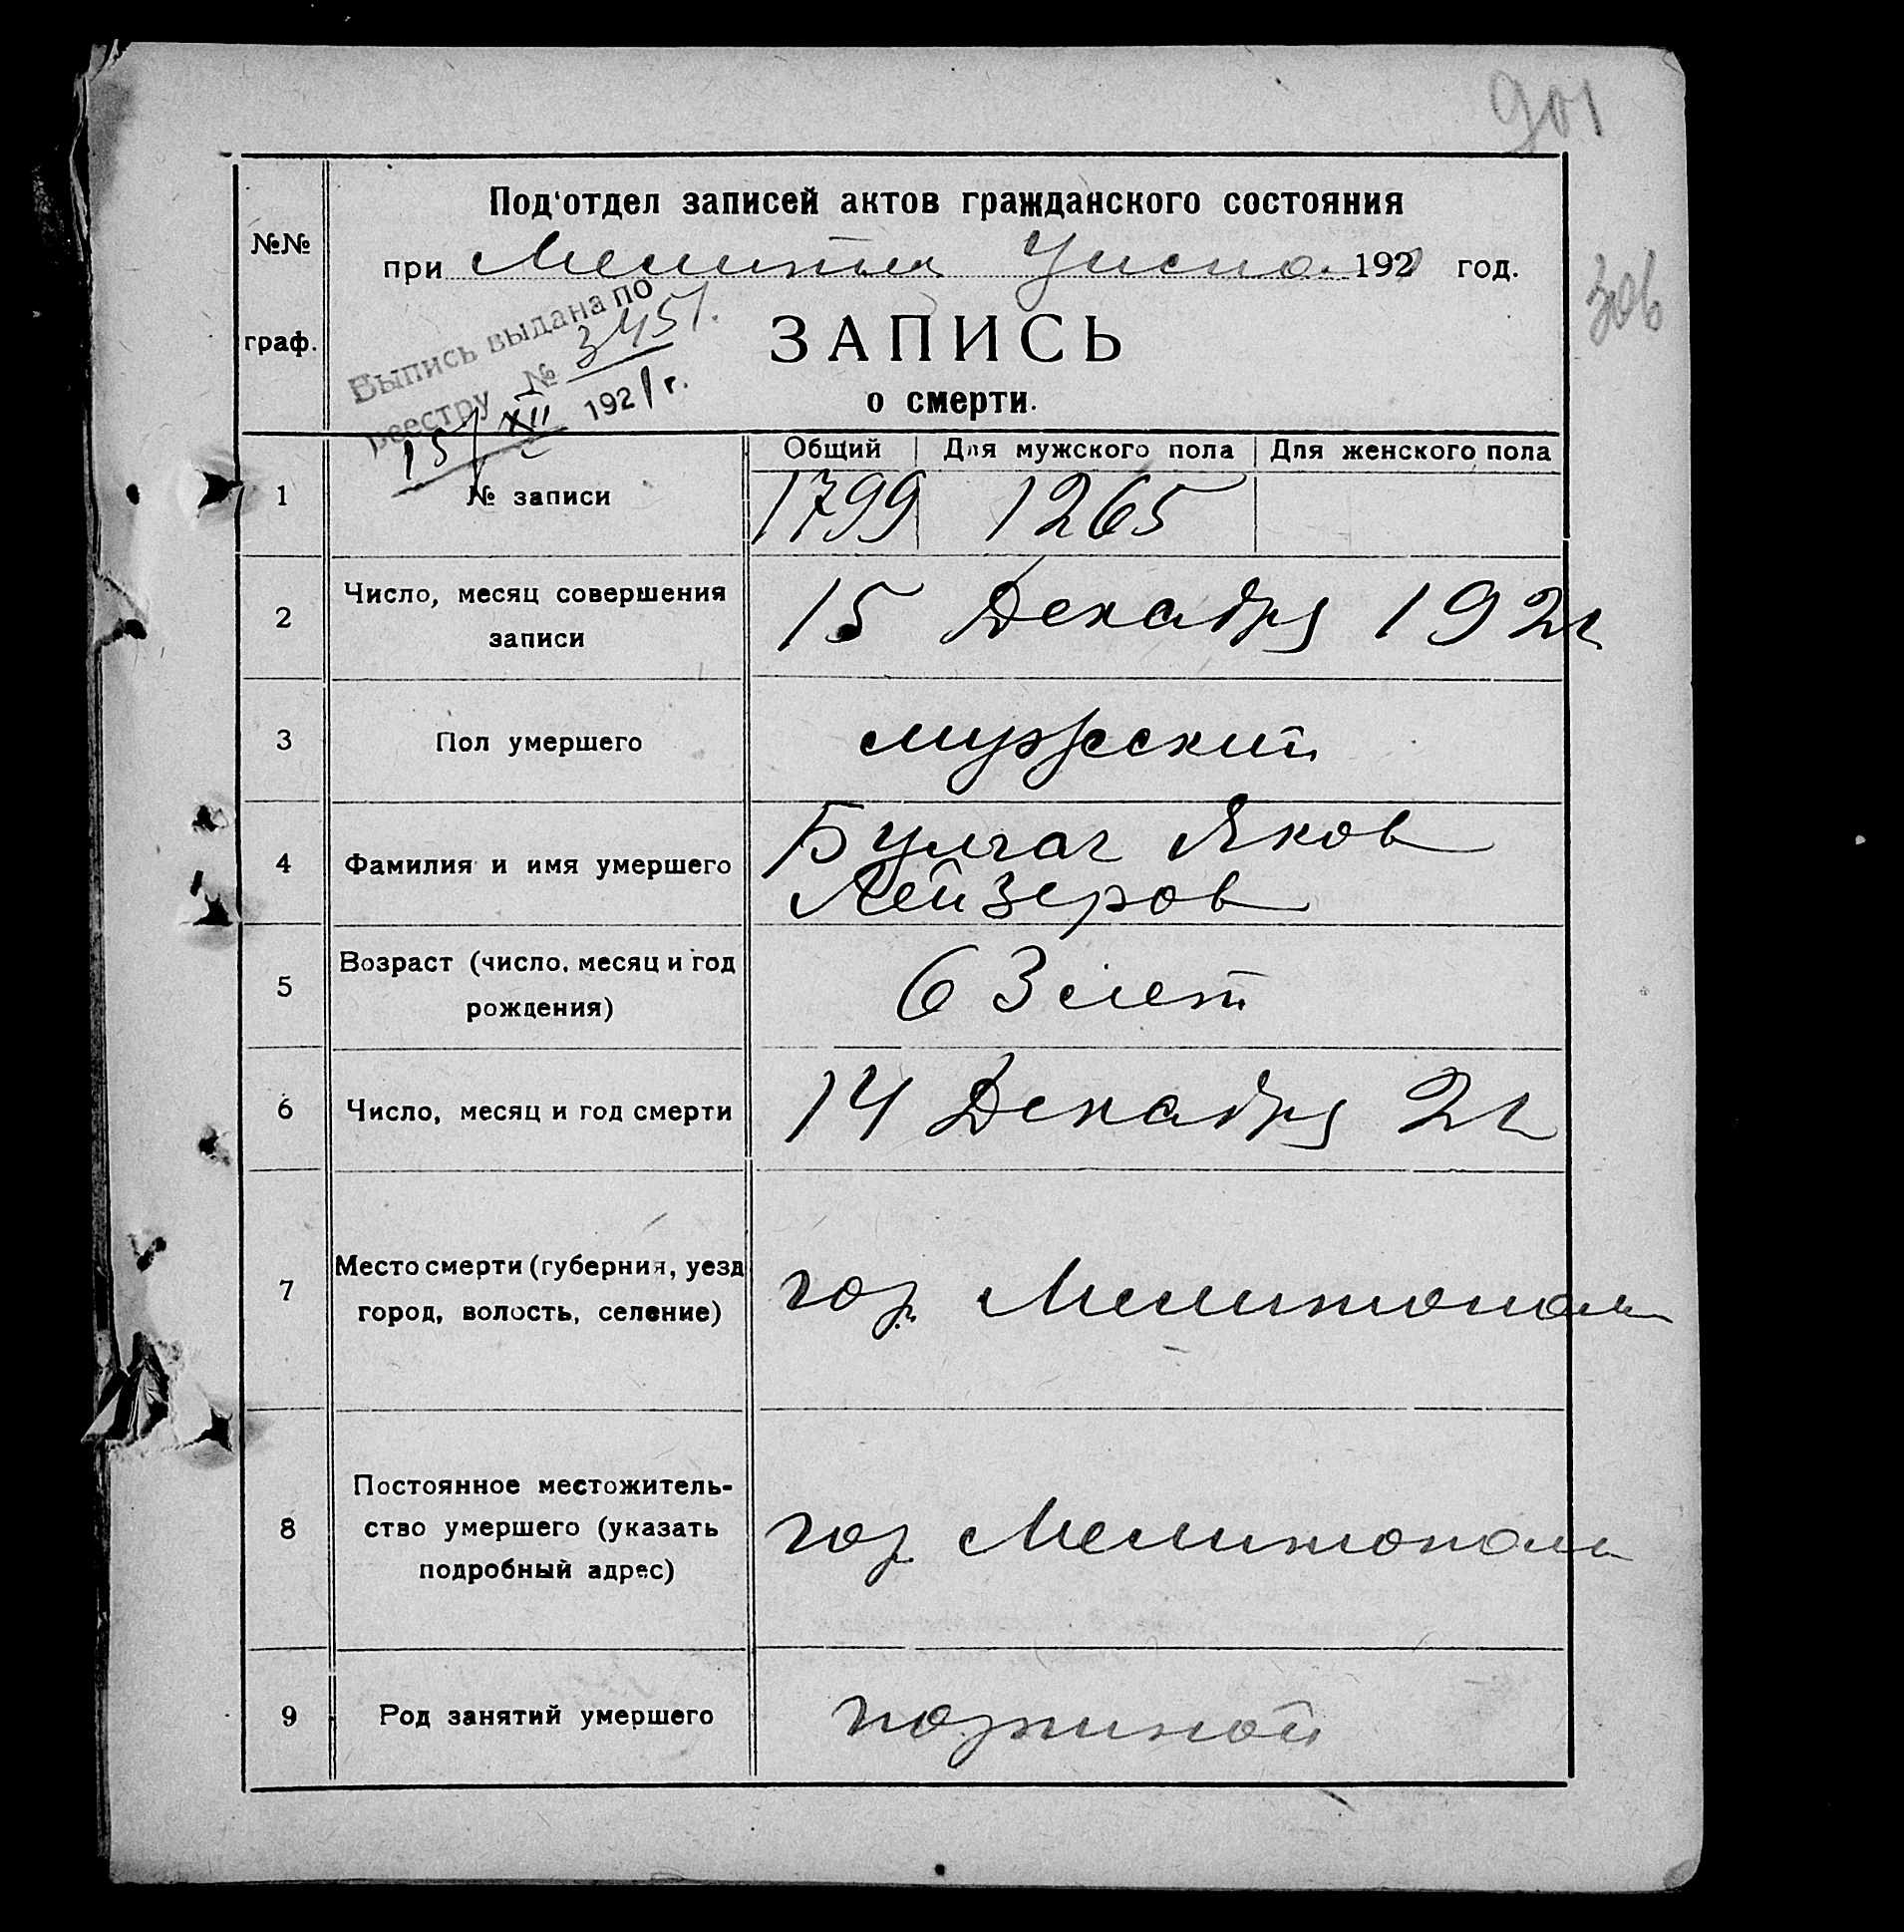 901
Под'отдел записей актов гражданского состояния
№№
при Мелитоп Уисп 192 год.
306
граф.
Выпись выдана по
реестру № 3457.
15/XII 1921 г.
ЗАПИСЬ
о смерти.
Общий Для мужского пола Для женского пола
1 № записи 1799 1265
2 Число, месяц совершения
записи
15 Декабря 1921
3 Пол умершего мужеский
4 Фамилия и имя умершего
Булгач Яков
Лейзеров
5 Возраст (число, месяц и год
рождения)
63 лет
6 Число, месяц и год смерти 14 Декабря 21
7 Место смерти (губерния, уезд
город, волость, селение)
гор. Мелитополь
8 Постоянное местожитель-
ство умершего (указать
подробный адрес)
гор. Мелитополь
9 Род занятий умершего портной